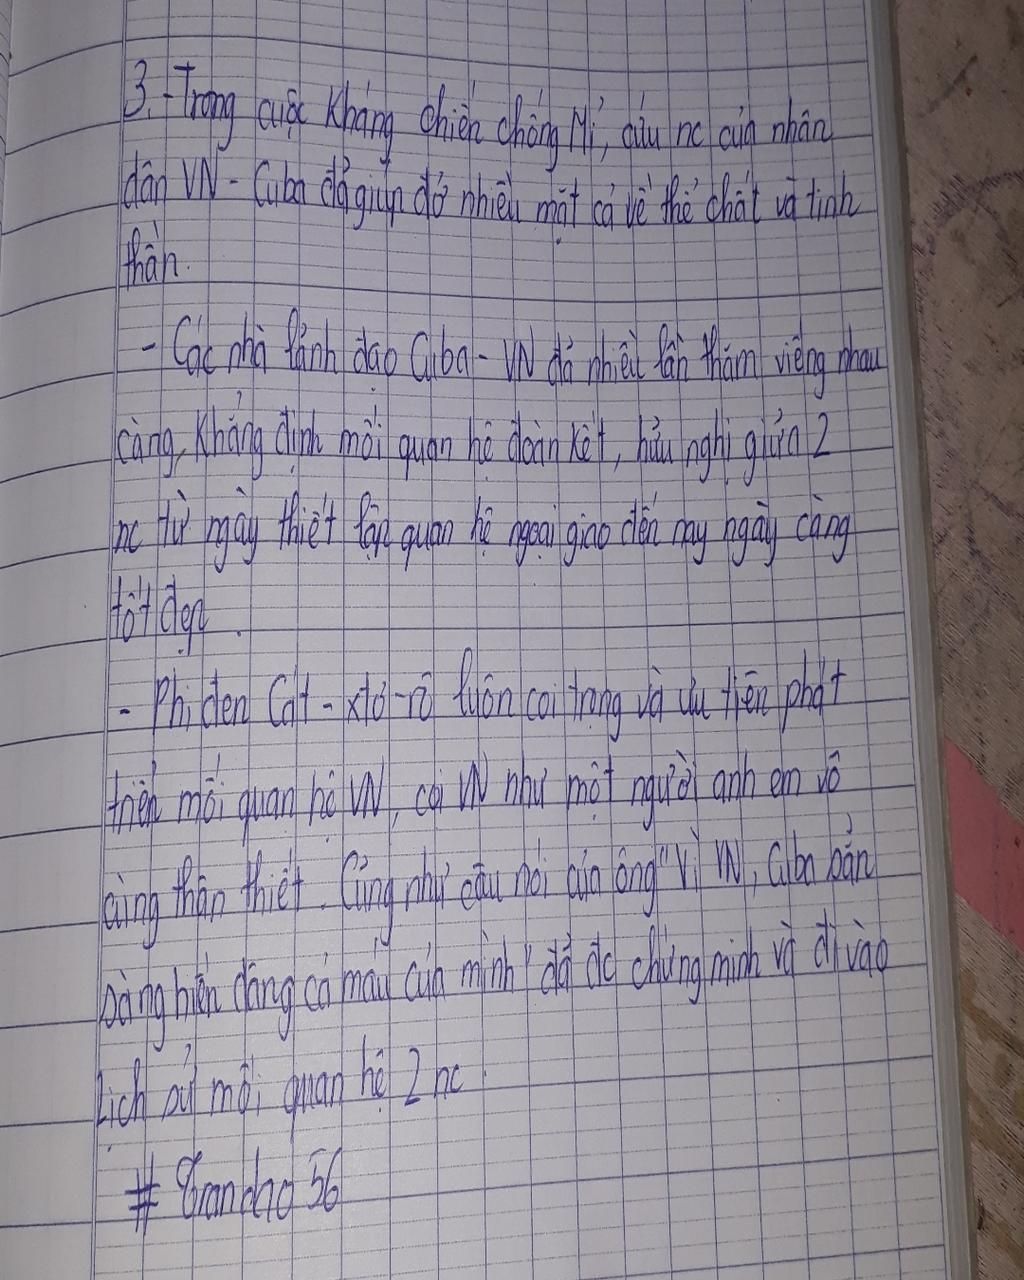 3. - Trong cuộc kháng chiến chống Mĩ, cứu nc của nhân
dân VN - Cuba đã giúp đỡ nhiều mặt cả về thể chất và tinh
thần.
- Các nhà lãnh đạo Cuba - VN đã nhiều lần thăm viếng nhau
càng, khẳng định mối quan hệ đoàn kết, hữu nghị giữa 2
nc từ ngày thiết lập quan hệ ngoại giao đến nay ngày càng
tốt đẹp.
- Phi đen Cát - xtơ - rô luôn coi trọng và ưu tiên phát
triển mối quan hệ VN, coi VN như một người anh em vô
cùng thân thiết. Cũng như câu nói của ông "Vì VN, Cuba sẵn
sàng hiến dâng cả máu của mình" đã đc chứng minh và đi vào
lịch sử mối quan hệ 2 nc.
56